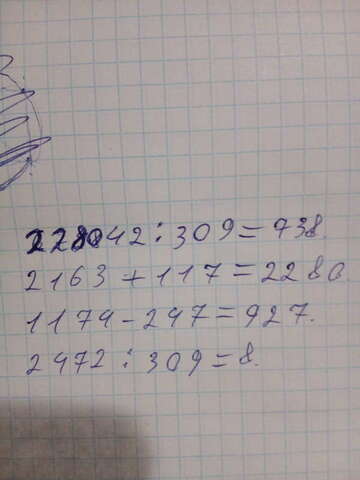 228042 : 309 = 738.
2163 + 117 = 2280.
1174 - 247 = 927.
2472 : 309 = 8.